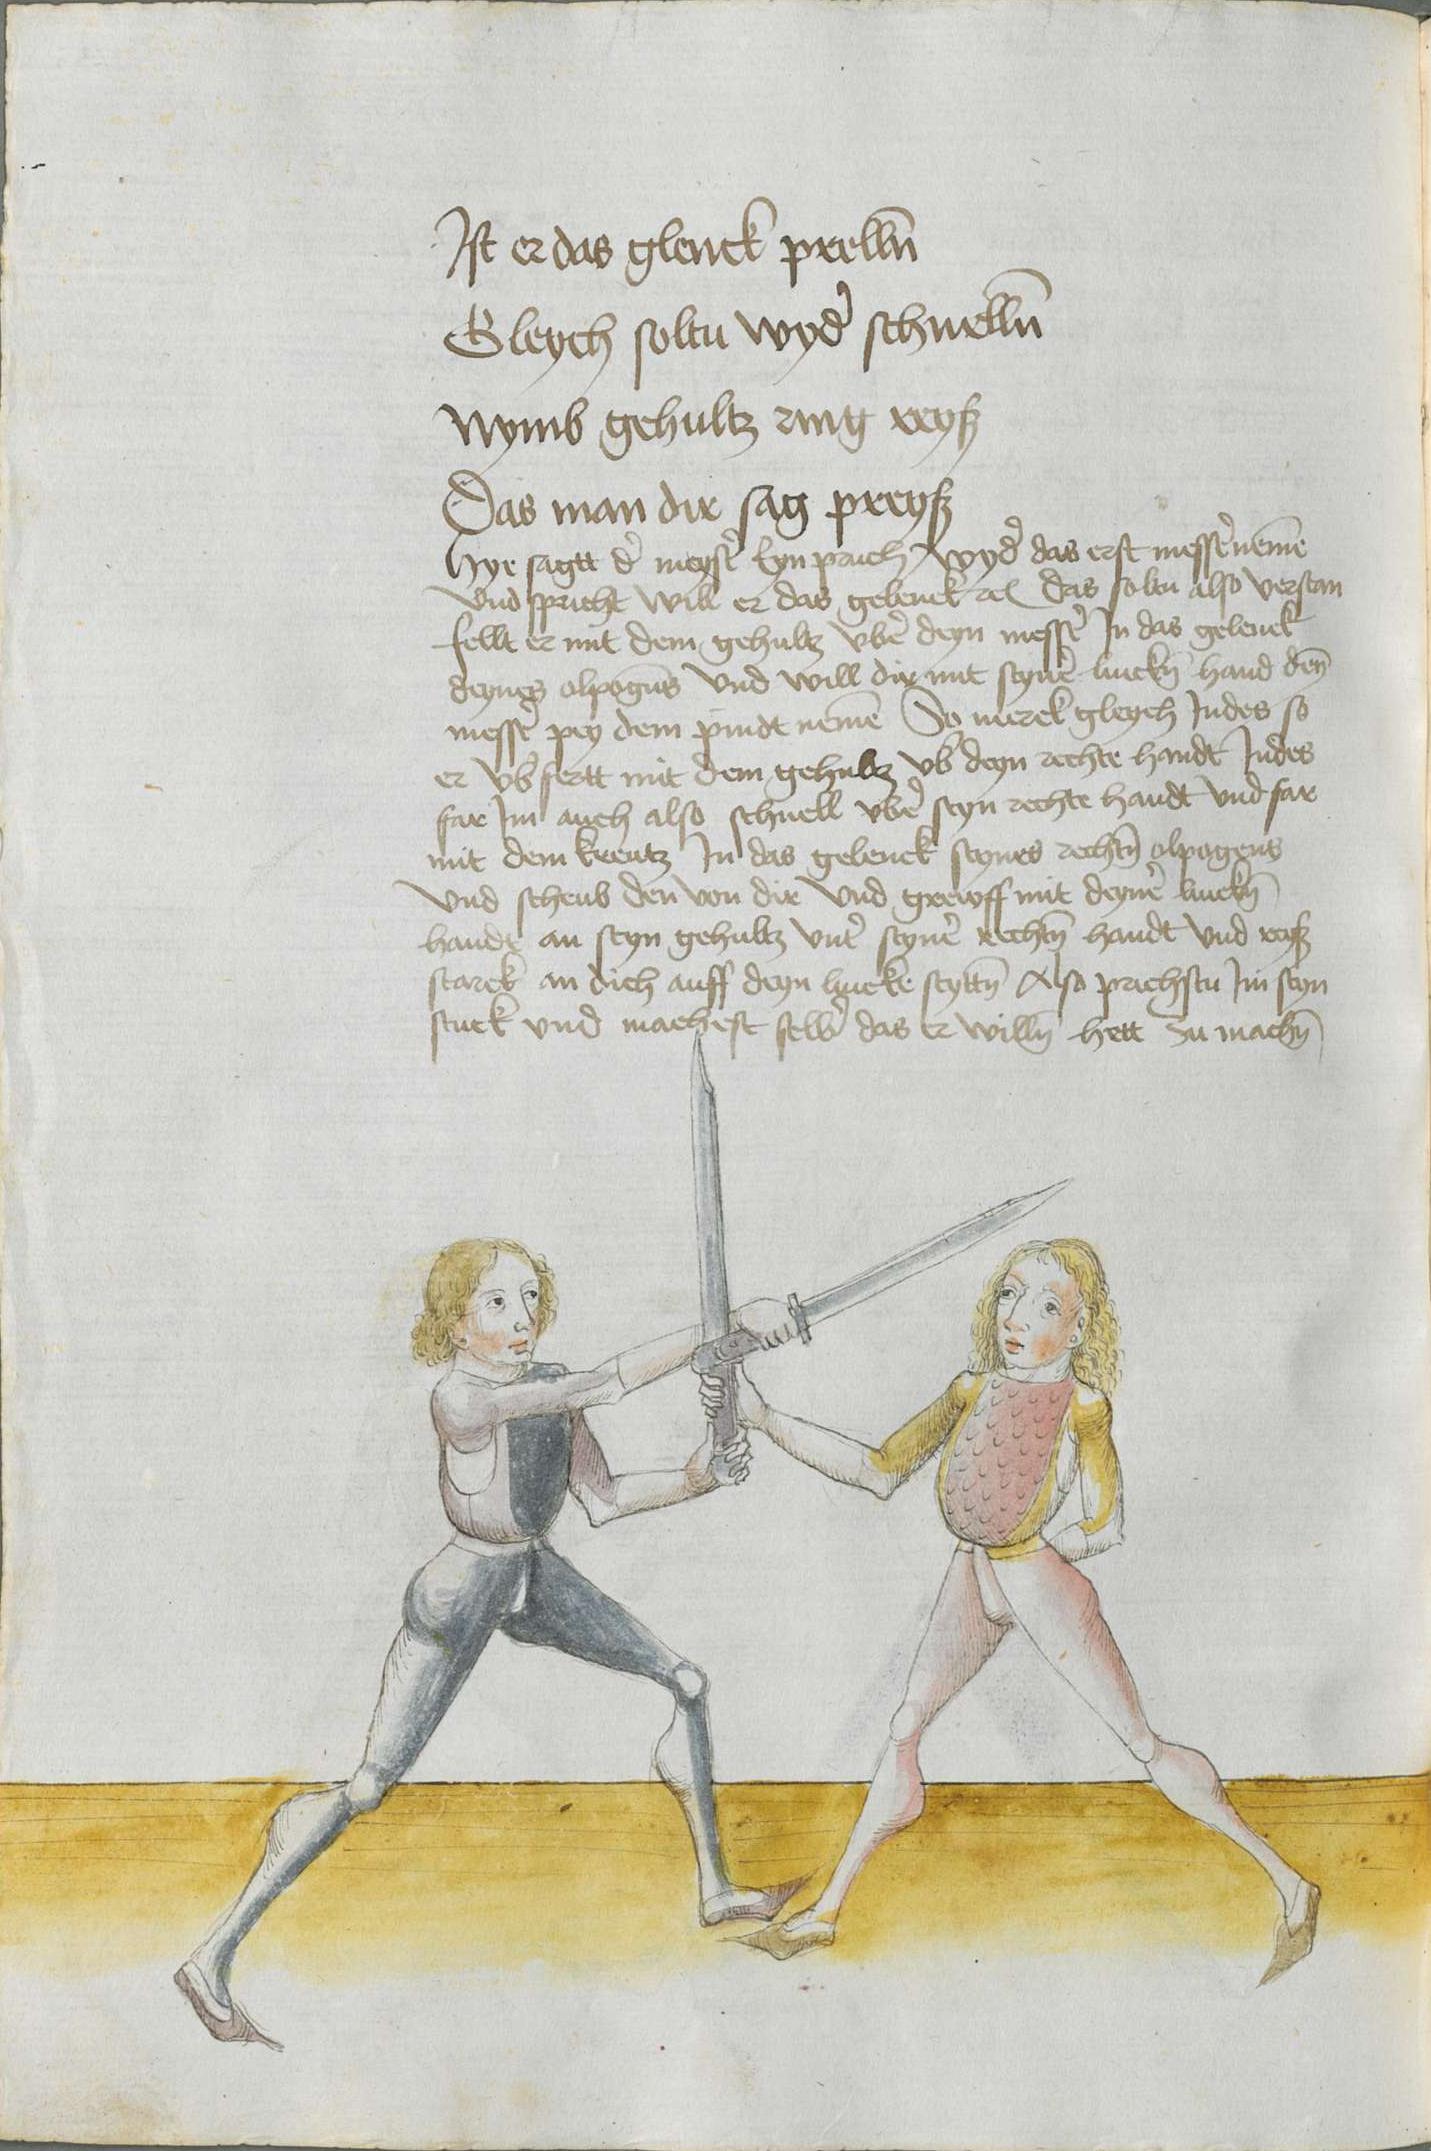 Ist er das glenck prelln̄
Gleych soltu wyd̛ schnelln̄
Nymb gehultz ring reyß
Das man dir sag preyß
Hye sagtt d̛ meyst̛ Eyn pruch wyd̛ das erst mess̛ nem̄e
Vnd spricht will er das gelenck rc̄ das soltu also verstan
fellt er mit dem gehultz vb̛ deyn mess̛ In das gelenck
deynes elpogens Vnd will dir mit seyn̛ linckn̄ hand deyn̄
mess̛ pey dem pindt nem̄e So merck gleych Indes so
er vb̛fertt mit dem gehultz vb̛ deyn rechte handt Indes
far Im auch also schnell vb̛ seyn rechte handt Vnd far
mit dem kreutz In das gelenck seynes rechtn̄ elpogens
Vnd scheub den von dir Vnd greyff mit deyn̛ linckn̄
handt an seyn gehultz vnt̛ seyn̛ rechtn̄ handt Vnd reyß
starck an dich auff deyn lincke seyttn̄ Also prichstu Im seyn
stuck vnd machest selb̛ das er willn̄ hett zu machn̄